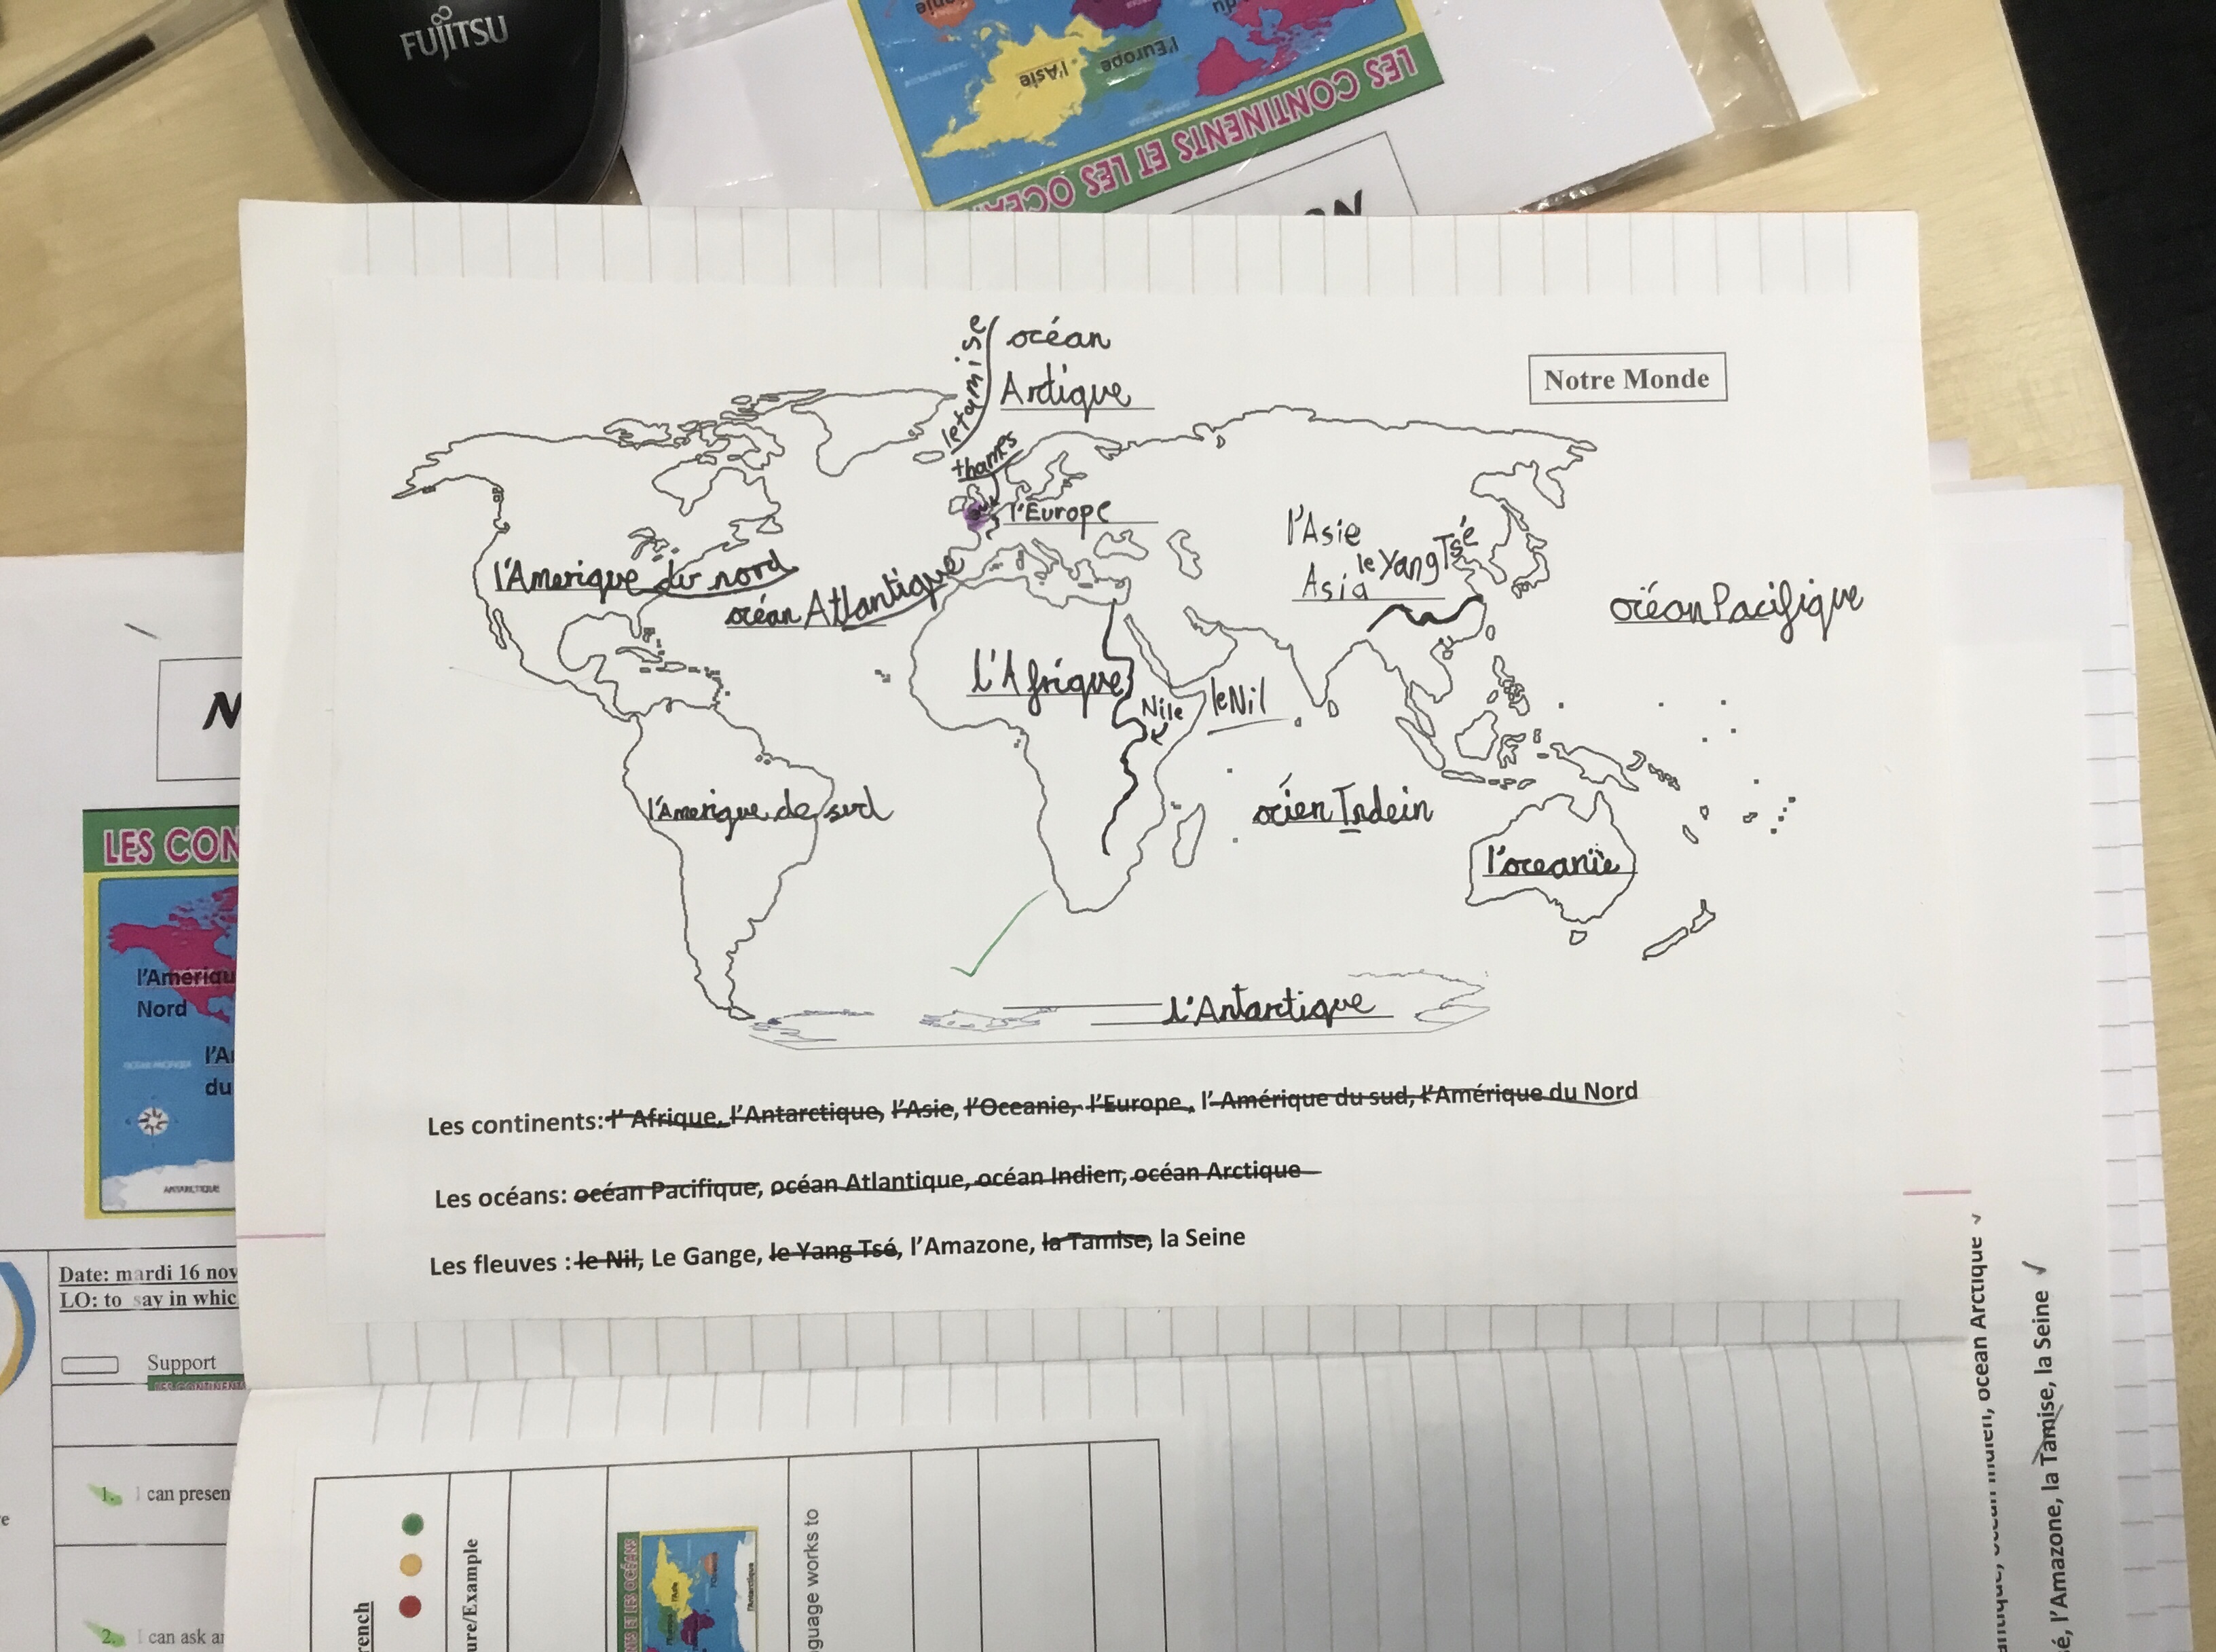 FUJITSU
l'Asie
l'Europe
du
LES CONTINENTS ET LES OCÉA
Notre Monde
océan
Artique
letamise
thames
l'Europe
l'Asie
Asia
le YangTsé
l'Amerique du nord
océan Atlantique
océan Pacifique
l'Afrique
Nile
leNil
l'Amerique de sud
ocíen Indein
l'oceanie
l'Antartique
Les continents: l' Afrique, l'Antarctique, l'Asie, l'Oceanie, l'Europe, l' Amérique du sud, l'Amérique du Nord
Les océans: océan Pacifique, océan Atlantique, océan Indien, océan Arctique
Les fleuves : le Nil, Le Gange, le Yang Tsé, l'Amazone, la Tamise, la Seine
N
LES CON
l'Amériqu
Nord
l'A
du
ANTARCTIQUE
Date: mardi 16 nov
LO: to say in whic
Support
LES CONTINENT
1. I can presen
2. I can ask a
rench
ure/Example
guage works to
océan Indien, ocean Arctique
é, l'Amazone, la Tamise, la Seine